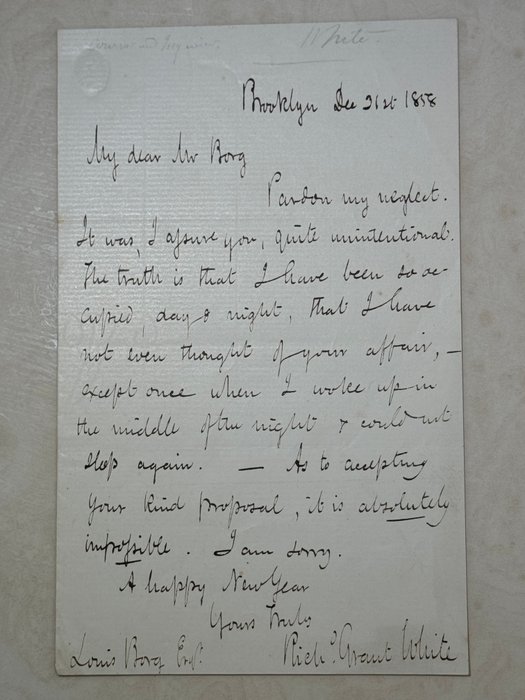 White
Brooklyn Dec 31st 1858
My dear Mr Borg
Pardon my neglect.
It was, I assure you, quite unintentional.
The truth is that I have been so oc-
cupied, day & night, that I have
not even thought of your affair, —
except once when I woke up in
the middle of the night & could not
sleep again. — As to accepting
your kind proposal, it is absolutely
impossible. I am sorry.
A happy New Year
Yours truly
Louis Borg Esqr. Richd. Grant White